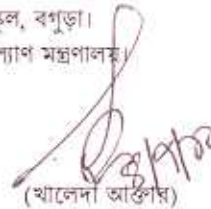 ল, বগুড়া।
ল্যাণ মন্ত্রণালয়।
(খালেদা আক্তার)